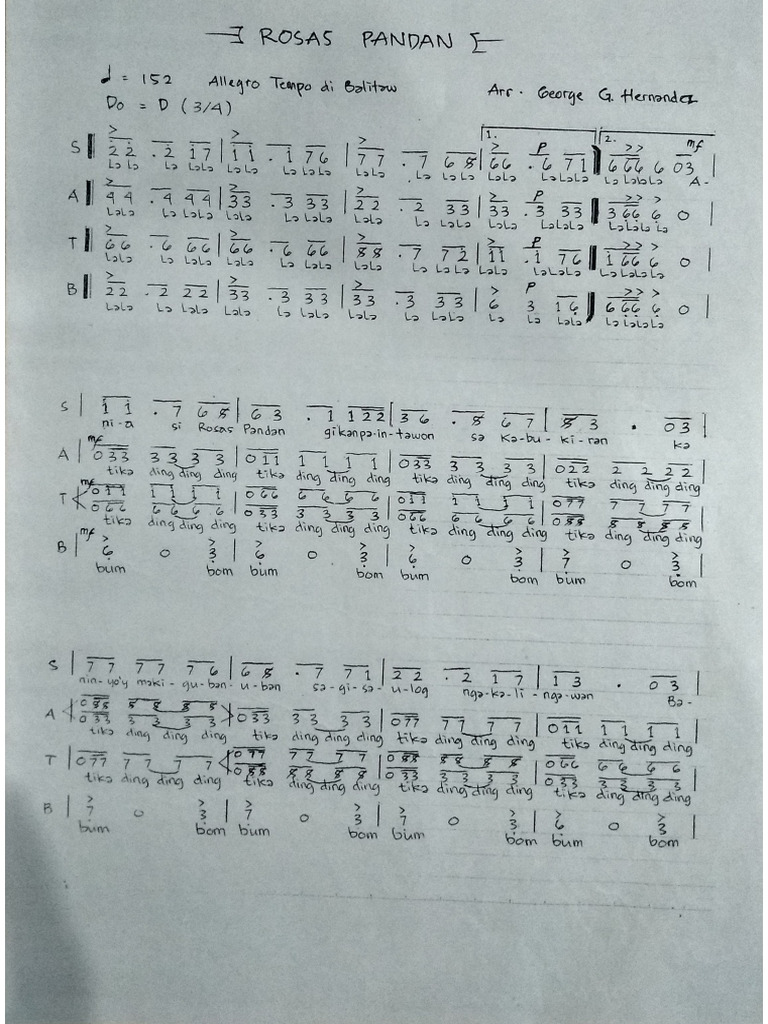 ROSAS PANDAN
♩ = 152 Allegro Tempo di Balitaw Arr. George G. Hernandez
Do = D (3/4)
1. 2.
> > > > P >> mf
S 2 2 . 2 1 7 | 1 1 . 1 7 6 | 7 7 . 7 6 8 | 6 6 . 6 7 1 | 6 6 6 6 0 3
La La La La La LaLa La LaLa LaLa La LaLa LaLa LaLaLa La LaLaLa A-
> > > > P >> >
A 4 4 . 4 4 4 | 3 3 . 3 3 3 | 2 2 . 2 3 3 | 3 3 . 3 3 3 | 3 6 6 6 0 |
LaLa La LaLa LaLa La LaLa LaLa La LaLa LaLa LaLaLa LaLaLa La
> > > > P >>>
T 6 6 . 6 6 6 | 6 6 . 6 6 6 | 8 8 . 7 7 2 | 1 1 . 1 7 6 | 1 6 6 6 0 |
LaLa La LaLa LaLa La LaLa LaLa La LaLa LaLa LaLaLa La LaLaLa
> > > > P >> >
B 2 2 . 2 2 2 | 3 3 . 3 3 3 | 3 3 . 3 3 3 | 6 3 1 6 | 6 6 6 6 0 |
LaLa La LaLa LaLa La LaLa LaLa La LaLa La La LaLa La LaLaLa
S | 1 1 . 7 6 8 | 6 3 . 1 1 2 2 | 3 6 . 8 6 7 | 8 3 . 0 3 |
ni-a si Rosas Pandan gikanpa-in-tawon sa Ka-bu-ki-ran ka
mf
A | 0 3 3 3 3 3 3 | 0 1 1 1 1 1 1 | 0 3 3 3 3 3 3 | 0 2 2 2 2 2 2 |
tika ding ding ding tika ding ding ding tika ding ding ding tika ding ding ding
mf
T 0 1 1 1 1 1 1 | 0 6 6 6 6 6 6 | 0 1 1 1 1 1 1 | 0 7 7 7 7 7 7
0 6 6 6 6 6 6 | 0 3 3 3 3 3 3 | 0 6 6 6 6 6 6 | 0 8 8 8 8 8 8
tika ding ding ding tika ding ding ding tika ding ding ding tika ding ding ding
mf > > > > > > > >
B | 6 0 3 | 6 0 3 | 6 0 3 | 7 0 3 |
bum bom bum bom bum bom bum bom
S | 7 7 7 7 7 6 | 6 8 . 7 7 1 | 2 2 . 2 1 7 | 1 3 . 0 3 |
nin-yo'y maki-gu-ban-u-ban sa-gi-sa-u-log nga-ka-li-nga-wan Ba-
A 0 8 8 8 8 8 8
0 3 3 3 3 3 3 | 0 3 3 3 3 3 3 | 0 7 7 7 7 7 7 | 0 1 1 1 1 1 1 |
tika ding ding ding tika ding ding ding tika ding ding ding tika ding ding ding
T | 0 7 7 7 7 7 7 | 0 7 7 7 7 7 7 | 0 8 8 8 8 8 8 | 0 6 6 6 6 6 6
0 8 8 8 8 8 8 | 0 3 3 3 3 3 3 | 0 3 3 3 3 3 3
tika ding ding ding tika ding ding ding tika ding ding ding tika ding ding ding
> > > > > > > >
B | 7 0 3 | 7 0 3 | 7 0 3 | 6 0 3 |
bum bom bum bom bum bom bum bom